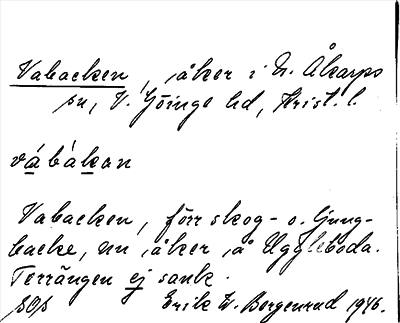 Vabacken, åker i N. Åkarps
sn, V. Göinge hd, Krist. l.
vábákan
Vabacken, förr skog- o. ljung-
backe, nu åker, å Uggleboda.
Terrängen ej sank.
Erik W. Bergenrud 1946.